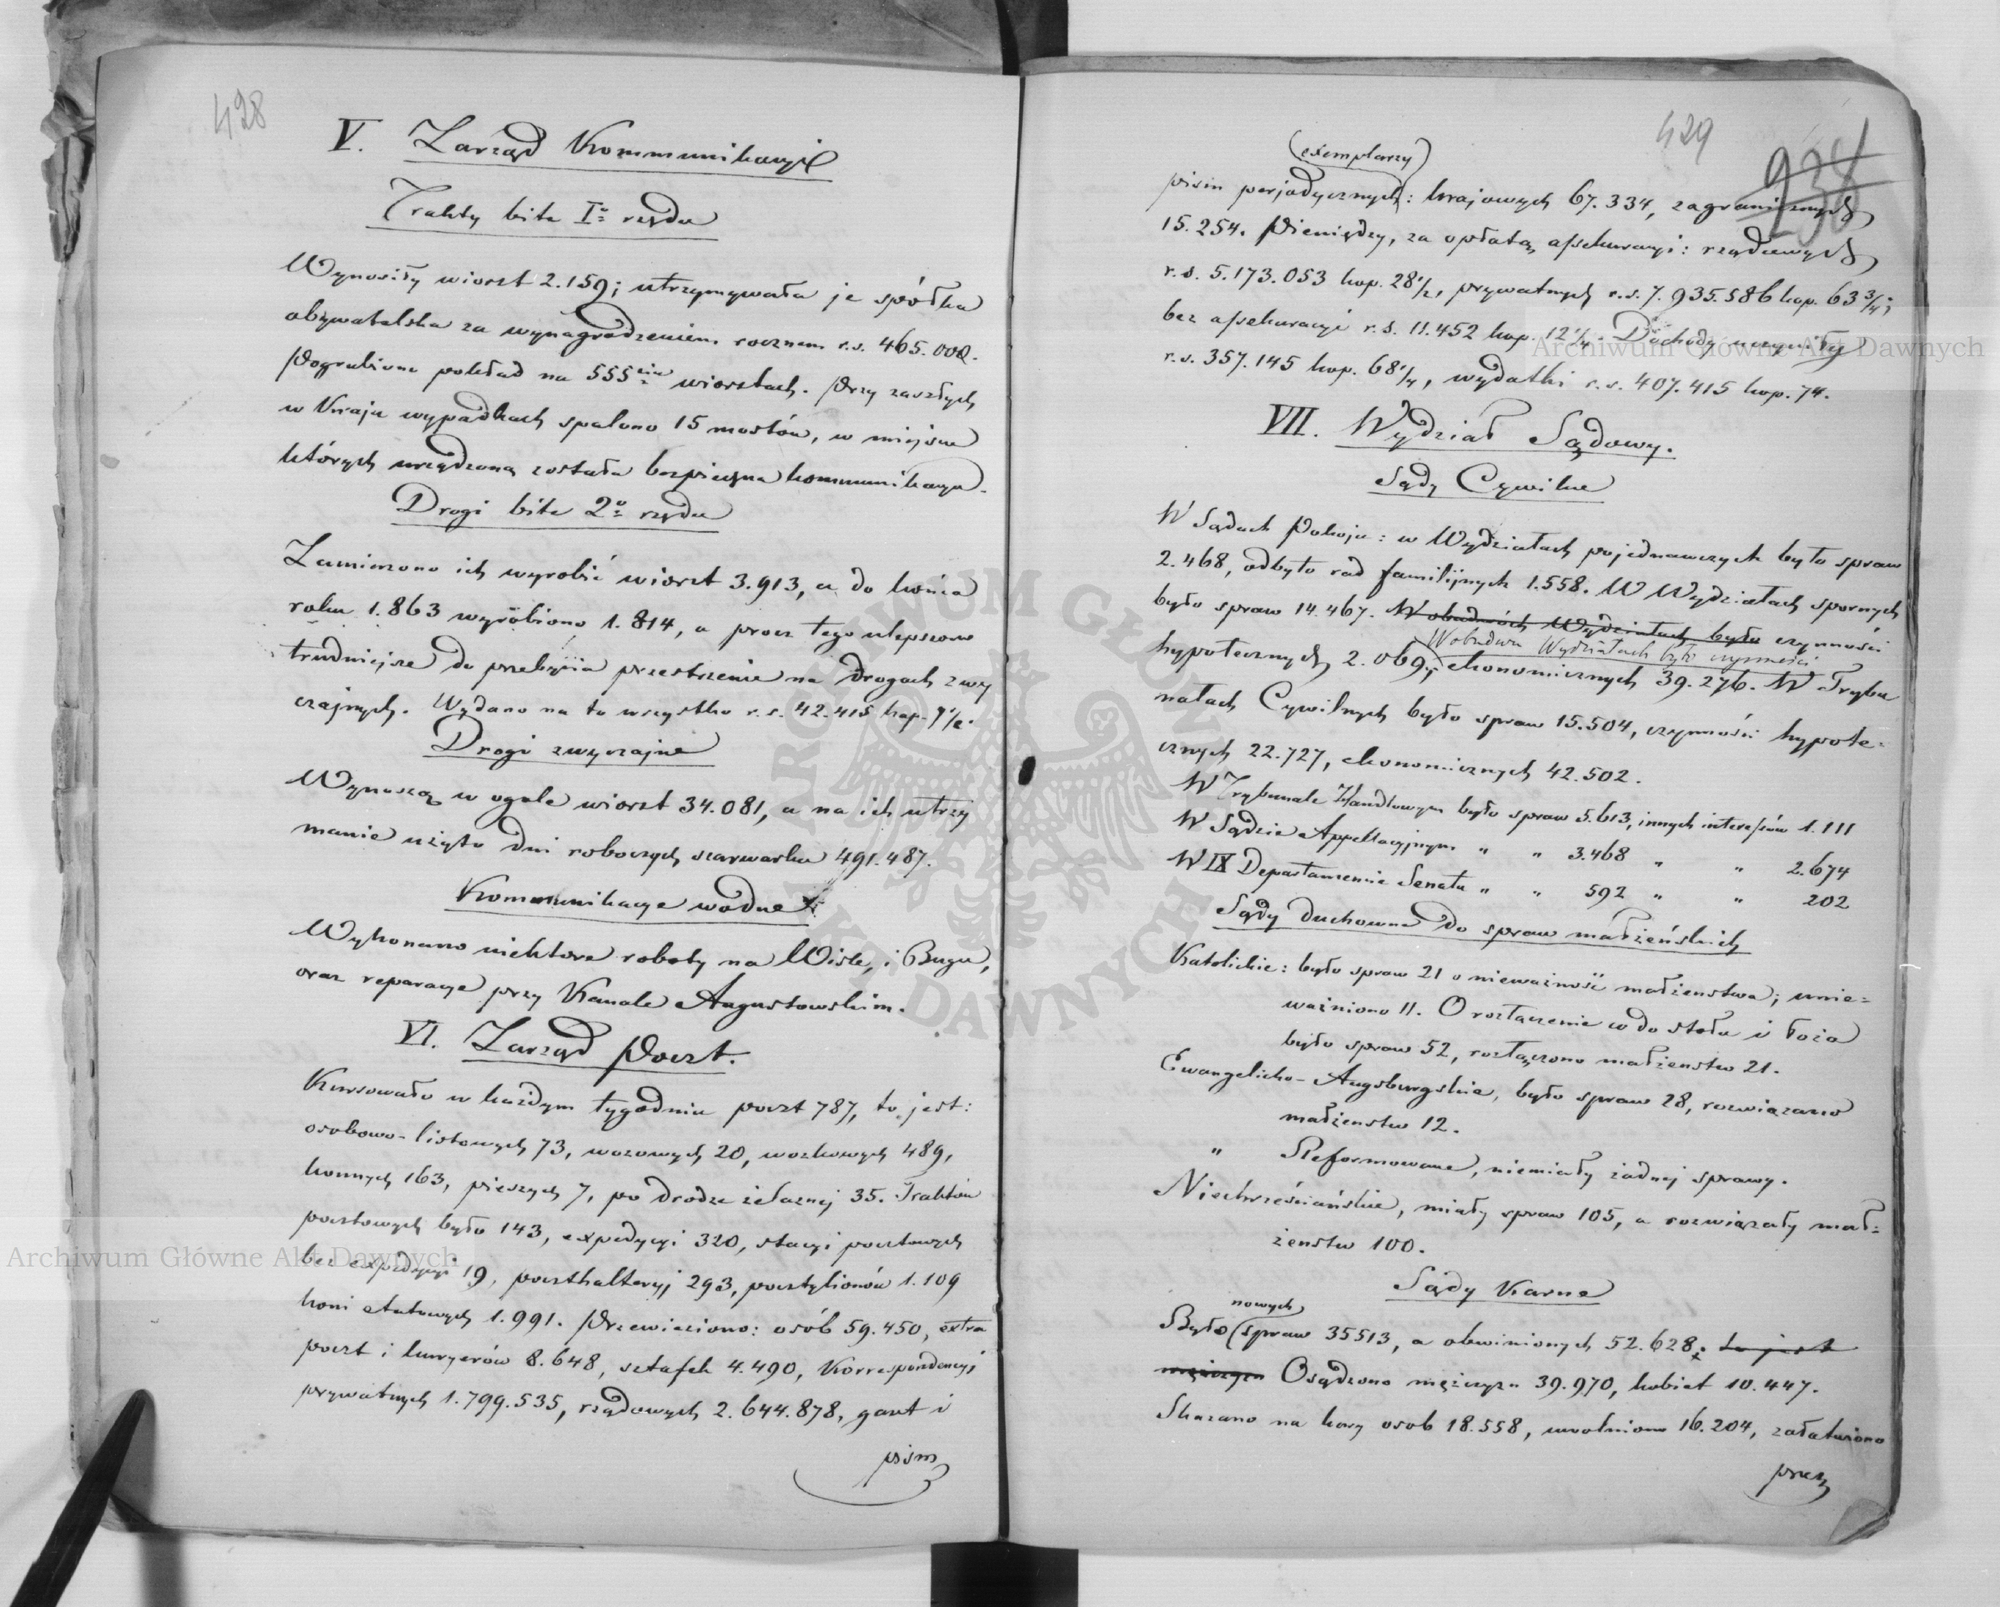 428
V. Zarząd Kommunikacyi
Trakty bite Iº rzędu
Wynosiły wiorst 2.159; utrzymywała je spółka
obywatelska za wynagrodzeniem rocznem r.s. 465.002.
Pogrubiono pokład na 555ciu wiorstach. Przy zaszłych
w Kraju wypadkach spalono 15 mostów, w miejsce
których urządzoną została bezpieczna kommunikacya.
Drogi bite 2º rzędu
Zamierzono ich wyrobić wiorst 3.913, a do końca
roku 1.863 wyrobiono 1.814, a procz tego ulepszono
trudniejsze do przebycia przestrzenie na drogach zwy
czajnych. Wydano na to wszystko r.s. 42.415 kop. 7½.
Drogi zwyczajne
Wynoszą w ogole wiorst 34.081, a na ich utrzy
manie użyto dni roboczych szarwarku 491.487.
Kommunikacye wodne
Wykonano niektore roboty na Wisle, i Bugu,
oraz reparacye przy Kanale Augustowskim.
VI. Zarząd Poczt.
Kursowało w każdym tygodniu poczt 787, to jest:
osobowo-listowych 73, wozowych 20, wozkowych 489,
konnych 163, pieszych 7, po drodze żelaznej 35. Traktów
pocztowych było 143, expedycyi 320, stacyi pocztowych
bez expedycyi 19, poczthalteryj 293, pocztylionów 1.109
koni etatowych 1.991. Przewieziono: osób 59.450, extra
poczt i kuryerów 8.648, sztafet 4.490, Korrespondencyi
prywatnych 1.799.535, rządowych 2.644.878, gazet i
pism
429
238
(exemplarzy)
pism perjodycznych: krajowych 67.334, zagranicznych
15.254. Pieniędzy, za opłatą assekuracyi: rządowych
r.s. 5.173.053 kop. 28½, prywatnych r.s. 7.935.586 kop. 63¾;
bez assekuracyi r.s. 11.452 kop. 12¼. Dochody uczyniły
r.s. 357.145 kop. 68¼, wydatki r.s. 407.415 kop. 74.
VII. Wydział Sądowy.
Sądy Cywilne
W Sądach Pokoju: w Wydziałach pojednawczych było spraw
2.468, odbyto rad familijnych 1.558. W Wydziałach spornych
było spraw 14.467. W obudwóch Wydziałach było czynności
W obudwu Wydziałach było czynności
hypotecznych 2.069, ekonomicznych 39.276. W Trybu
nałach Cywilnych było spraw 15.504, czynności hypote-
cznych 22.727, ekonomicznych 42.502.
W Trybunale Handlowym było spraw 5.613, innych interessów 1.111
W Sądzie Appellacyjnym " " 3.468 " " 2.674
W IX Departamencie Senatu " " 592 " " 202
Sądy duchowne do spraw małżeńskich
Katolickie: było spraw 21 o nieważność małżenstwa; unie-
ważniono 11. O rozłączenie co do stołu i łoża
było spraw 52, rozłączono małżenstw 21.
Ewangelicko-Augsburgskie, było spraw 28, rozwiązano
małżenstw 12.
" Reformowane, niemiały żadnej sprawy.
Niechrześciańskie, miały spraw 105, a rozwiązały mał-
żenstw 100.
Sądy Karne
nowych
Było spraw 35513, a obwinionych 52.628. to jest
mężczyzn Osądzono mężczyzn 39.970, kobiet 10.447.
Skazano na kary osob 18.558, uwolniono 16.204, załatwiono
przez
Archiwum Główne Akt Dawnych
Archiwum Główne Akt Dawnych
ARCHIWUM GŁÓWNE AKT DAWNYCH